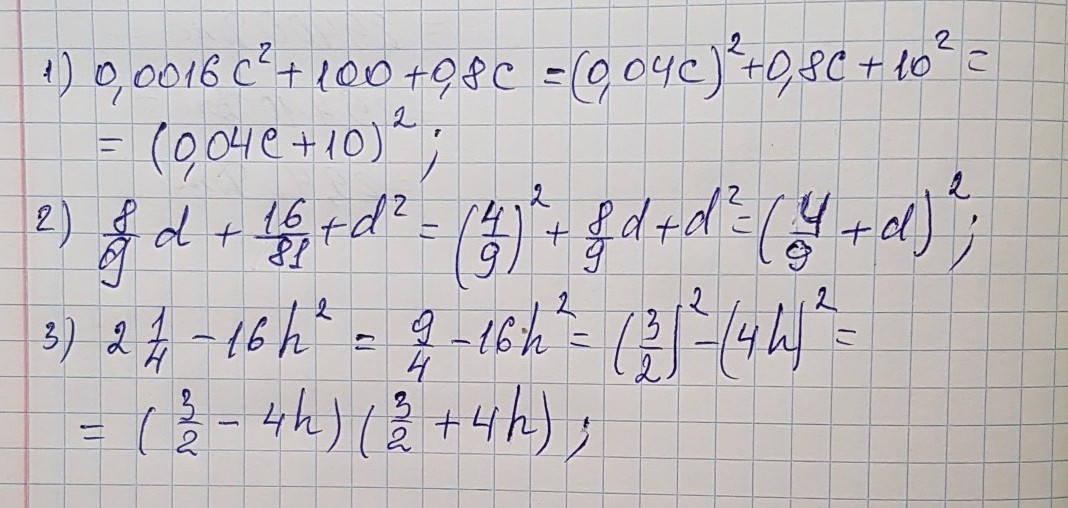 1) 0,0016c² + 100 + 0,8c = (0,04c)² + 0,8c + 10² =
= (0,04c + 10)²;
2) 8/9 d + 16/81 + d² = (4/9)² + 8/9 d + d² = (4/9 + d)²;
3) 2 1/4 - 16h² = 9/4 - 16h² = (3/2)² - (4h)² =
= (3/2 - 4h)(3/2 + 4h);